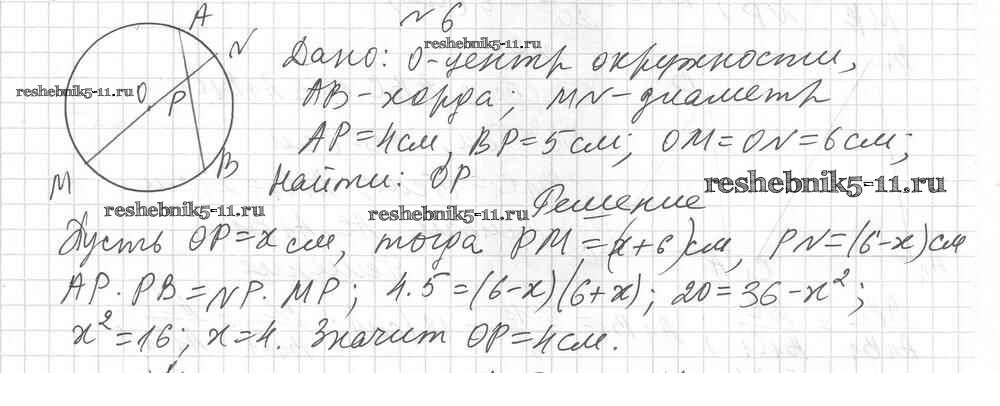 №6
A
N
O
P
M
B
Дано: O-центр окружности,
AB-хорда; MN-диаметр
AP=4см, BP=5см; OM=ON=6см;
Найти: OP
Решение
Пусть OP=x см, тогда PM=(x+6)см, PN=(6-x)см
AP·PB=NP·MP; 4·5=(6-x)(6+x); 20=36-x²;
x²=16; x=4. Значит OP=4см.
reshebnik5-11.ru
reshebnik5-11.ru
reshebnik5-11.ru
reshebnik5-11.ru
reshebnik5-11.ru